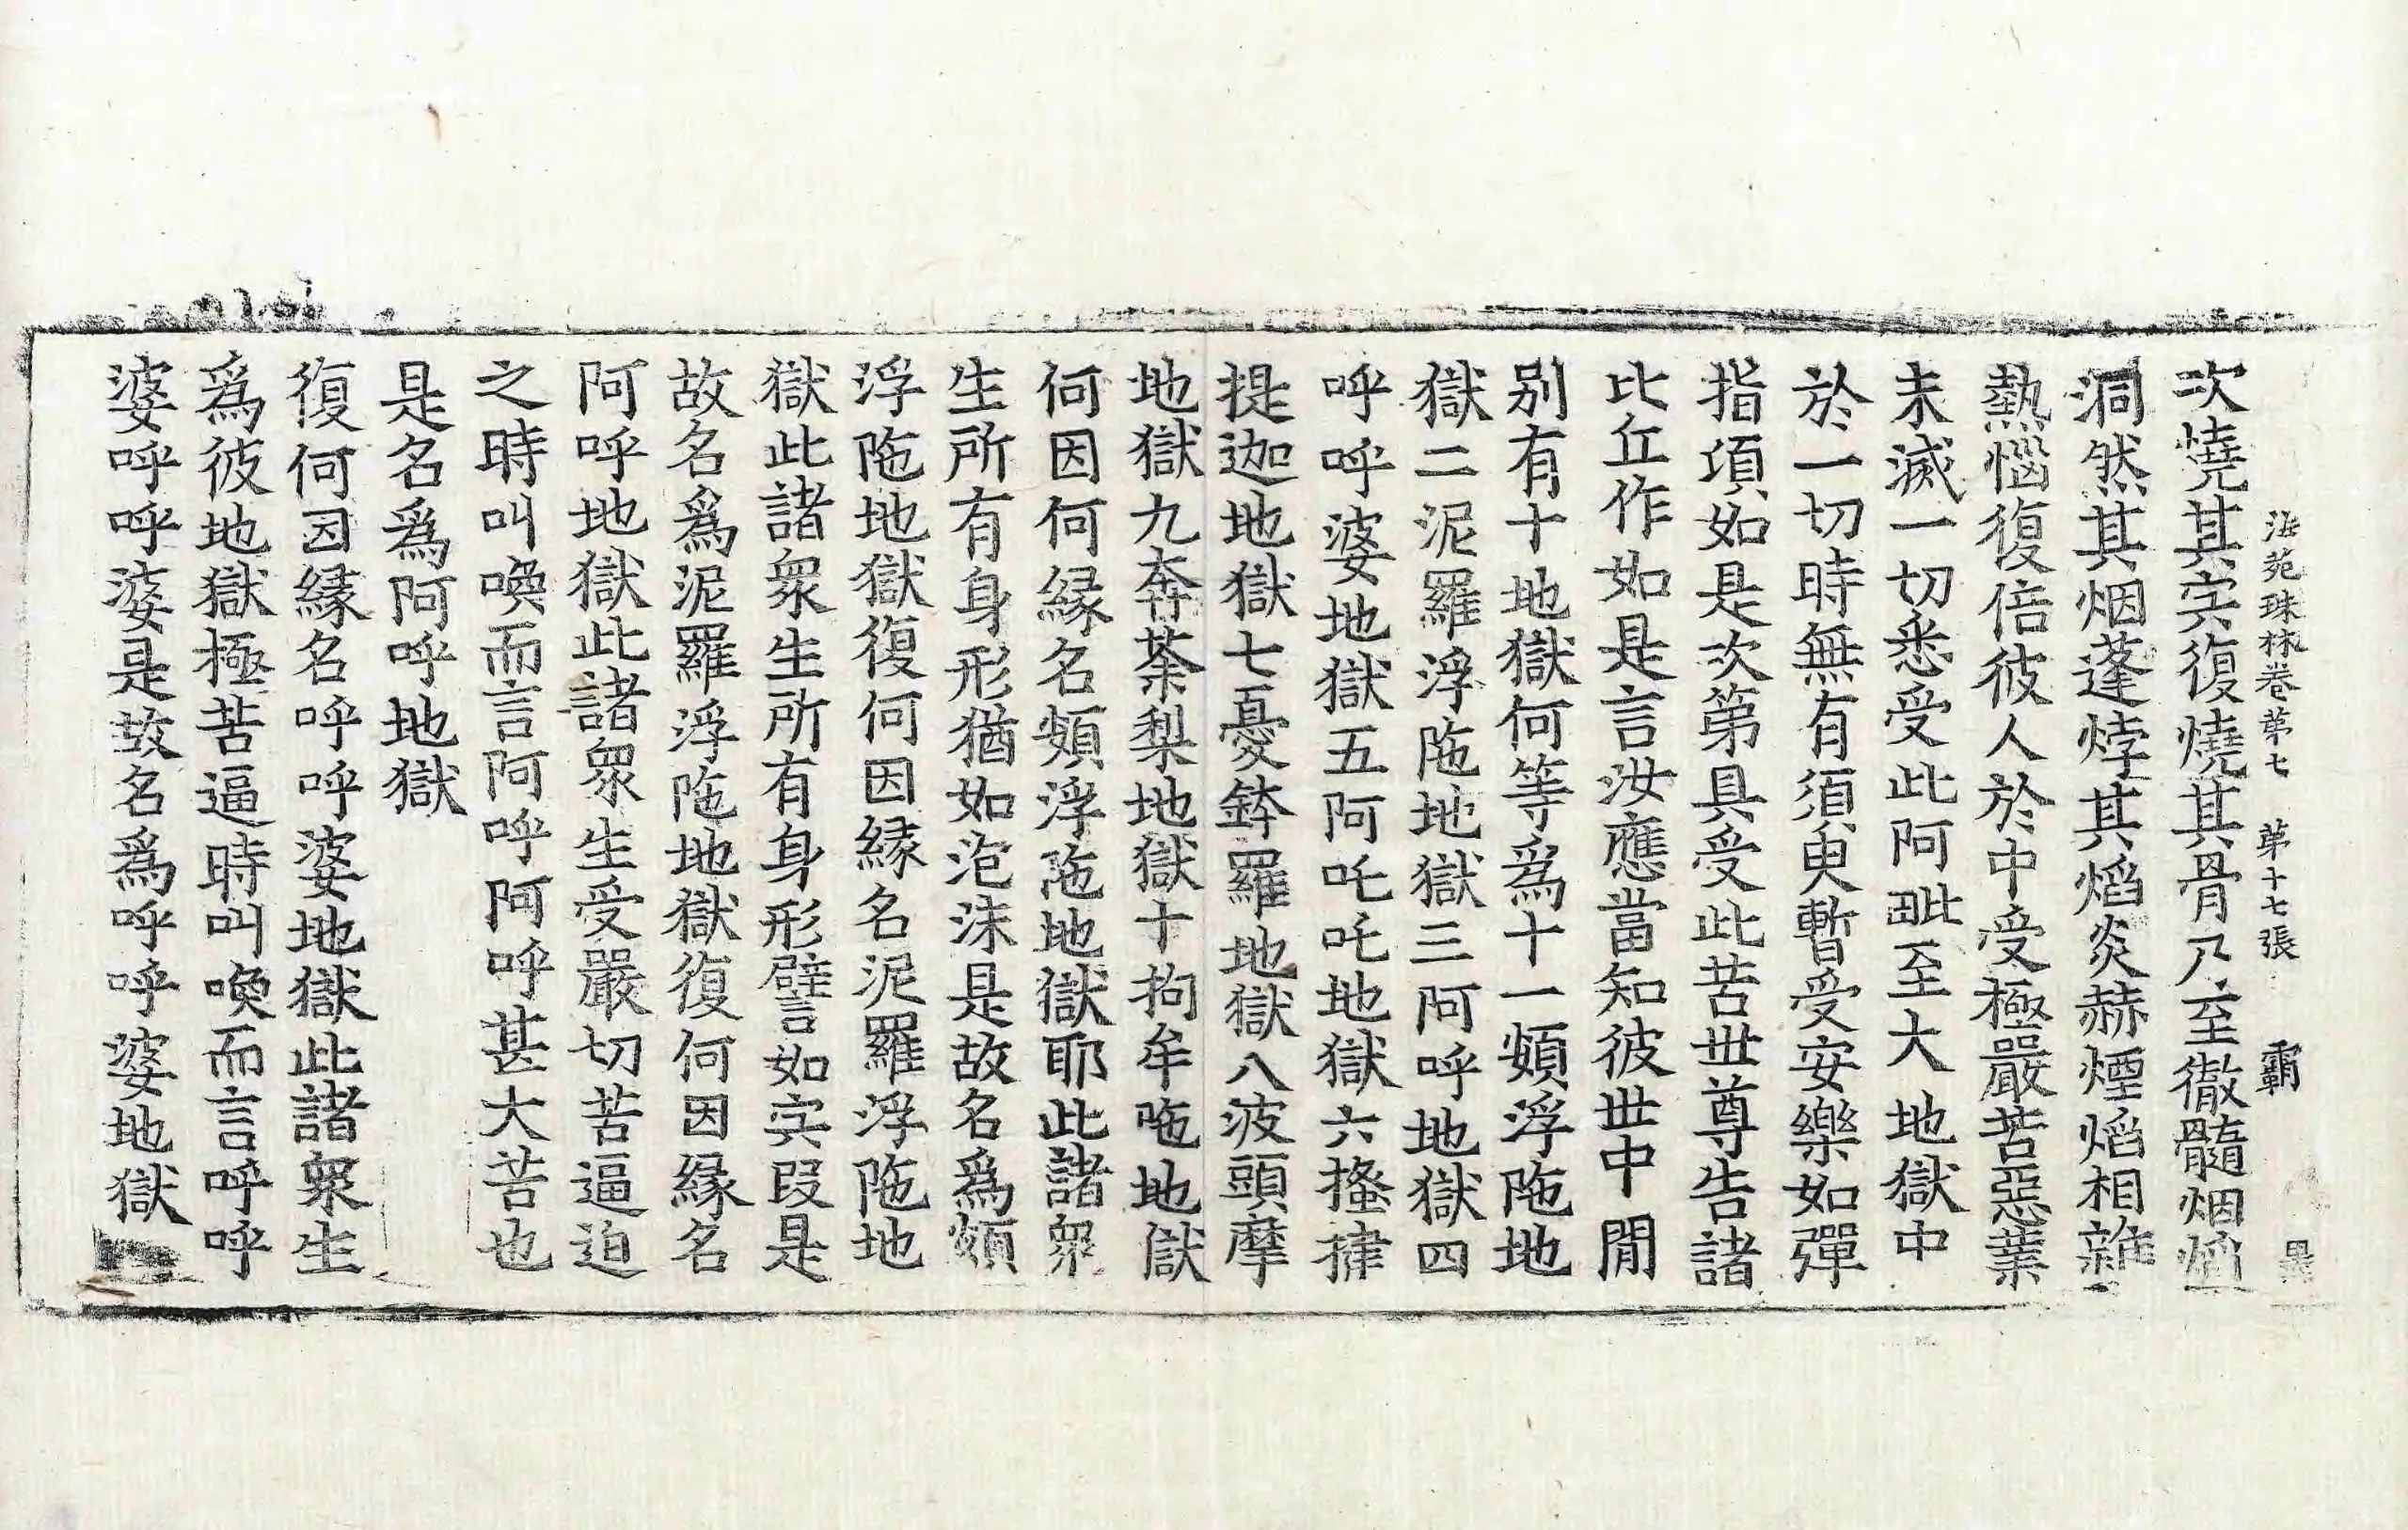 法苑珠林卷第七　第十七張　霸
次燒其宍復燒其骨乃至徹髓烟熖
洞然其烟蓬㶿其熖炎赫煙熖相雜
熱惱復倍彼人於中受極嚴苦惡業
未滅一切悉受此阿毗至大地獄中
於一切時無有須臾暫受安樂如彈
指項如是次第具受此苦世尊告諸
比丘作如是言汝應當知彼世中間
别有十地獄何等為十一頞浮陁地
獄二泥羅浮陁地獄三阿呼地獄四
呼呼婆地獄五阿吒吒地獄六搔揵
提迦地獄七憂鉢羅地獄八波頭摩
地獄九奔荼梨地獄十拘牟陁地獄
何因何緣名頞浮陁地獄耶此諸衆
生所有身形猶如泡沫是故名為頞
浮陁地獄復何因緣名泥羅浮陁地
獄此諸衆生所有身形譬如宍段是
故名為泥羅浮陁地獄復何因緣名
阿呼地獄此諸衆生受嚴切苦逼迫
之時叫喚而言阿呼阿呼甚大苦也
是名為阿呼地獄
復何因緣名呼呼婆地獄此諸衆生
為彼地獄極苦逼時叫喚而言呼呼
婆呼呼婆是故名為呼呼婆地獄